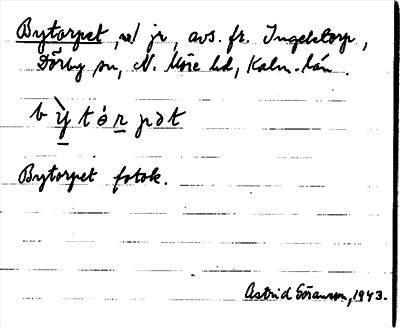 Bytorpet, u/ jr, avs. fr. Ingelstorp,
Dörby sn, N. Möre hd, Kalm. län.
b ỳ̠ t ó r̠ p ə t
Bytorpet fotok.
Astrid Göransson, 1943.